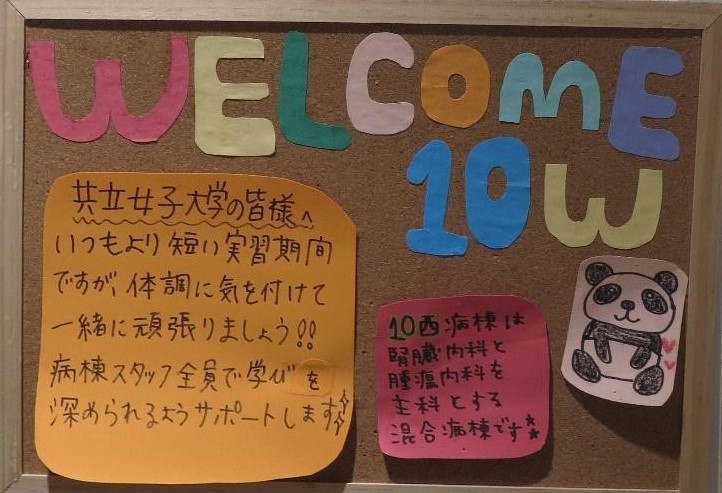 WELCOME
10W
共立女子大学の皆様へ
いつもより短い実習期間
ですが、体調に気を付けて
一緒に頑張りましょう!!
病棟スタッフ全員で学びを
深められるようサポートします
10西病棟は
腎臓内科と
腫瘍内科を
主科とする
混合病棟です